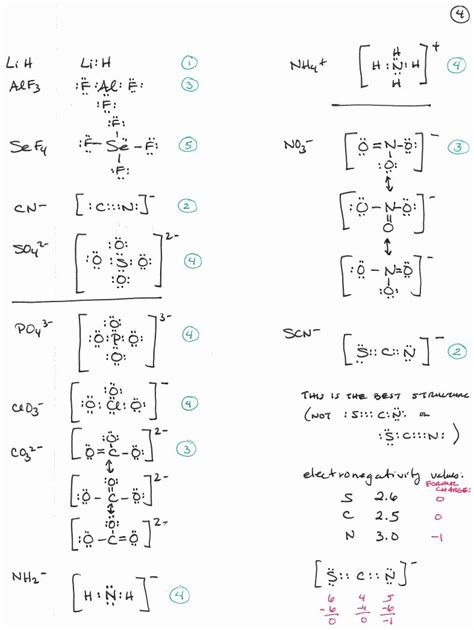 4
LiH Li:H 1
AlF3 :F:Al:F: 3
:F:
SeF4 :F:
:F-Se-F: 5
:F:
CN- [:C:::N:]- 2
SO4 2- [:O:
:O:S:O:
:O:]2- 4
PO4 3- [:O:
:O:P:O:
:O:]3- 4
ClO3- [:O:
:O:Cl:O:]- 4
CO3 2- [:O:
O=C-O:]2- 3
↕
[:O:
:O-C-O:]2-
↕
[:O:
:O-C=O]2-
NH2- [H:N:H]- 4
NH4+ [H
H:N:H
H]+ 4
NO3- [O=N-O:
:O:]- 3
↕
[:O-N-O:
O]-
↕
[:O-N=O
:O:]-
SCN- [S::C::N]- 2
THIS IS THE BEST STRUCTURE
(NOT :S:::C:N: or
:S:C:::N:)
electronegativity values:
FORMAL
CHARGE:
S 2.6 0
C 2.5 0
N 3.0 -1
[S::C::N]-
6 4 5
-6 -4 -6
0 0 -1